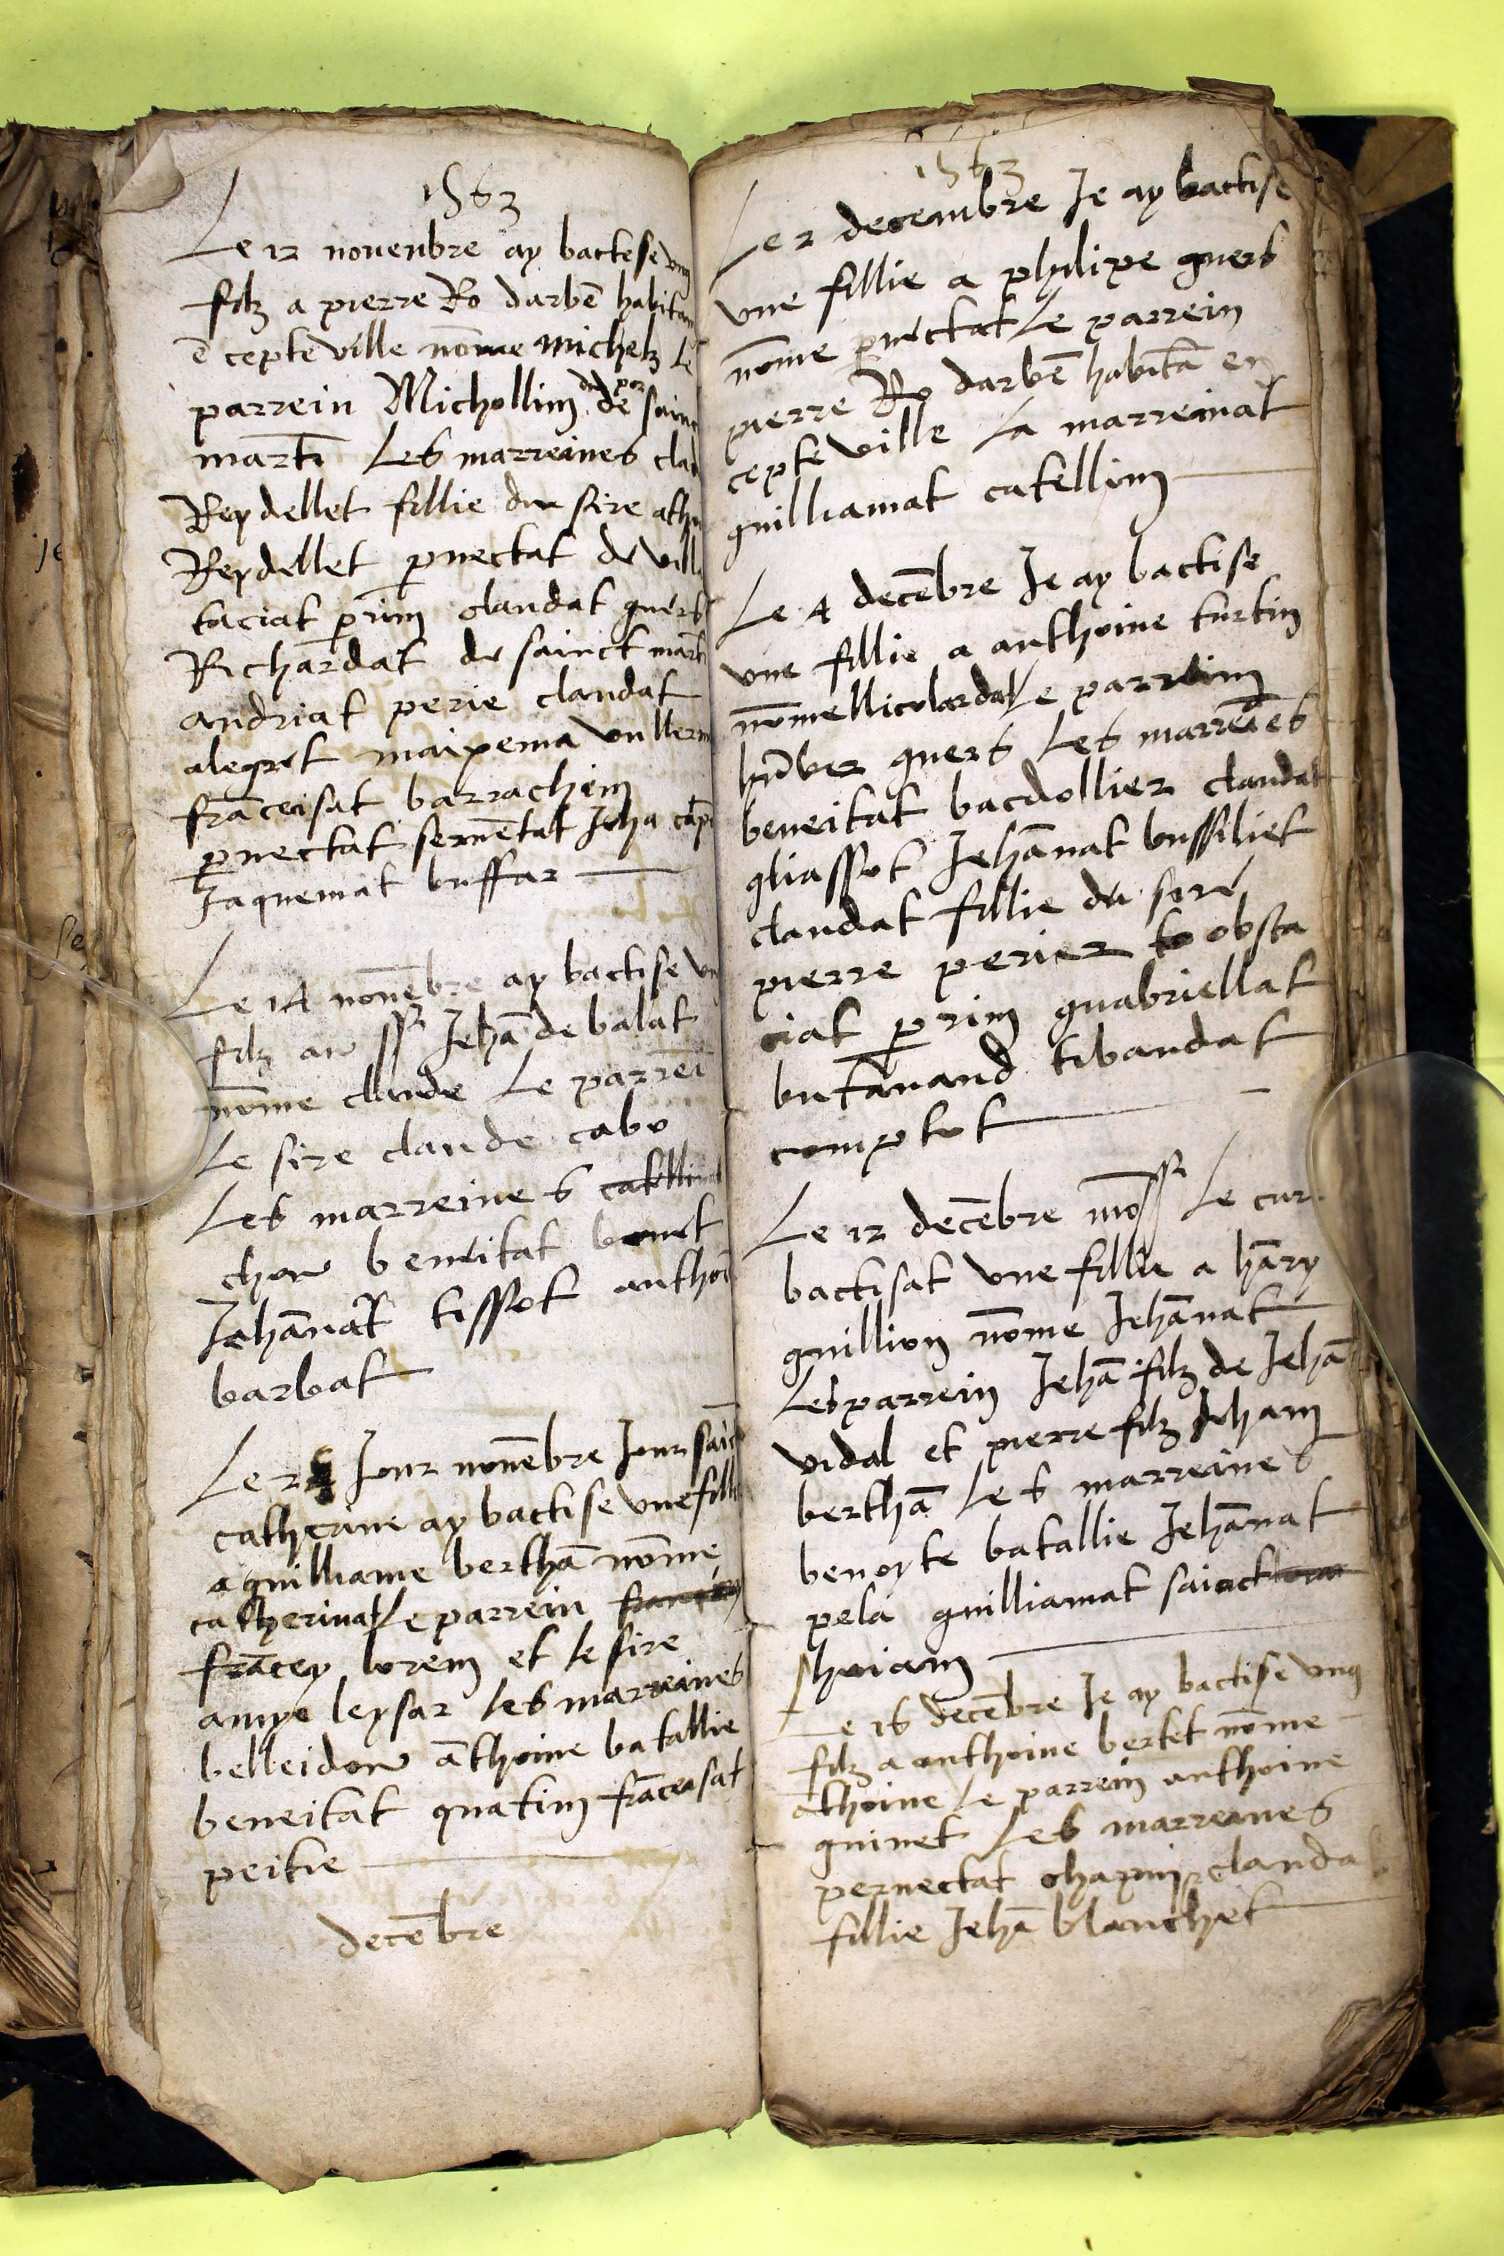 1563
Le 12 novenbre ay bactese ung
filz a pierre Ro darbē habitan
ē cepte ville nōme michelz Le
parrein Michollim du por de sainc
martī Les marreines clau
Reydellet fillie du sire
Reydellet pnectat de ville
taciat prim claudat guers
Richardat de sainct martī
andriat perie claudat
alegret maixema vullerm
frāceisat barrachim
pnectat sermētat
Jaquemat buffar
Le 14 novēbre ay bactise un
filz au Jehā de balat
nōme claude Le parreī
Le sire claude cabo
Les marreines
chou beneitat bonet
Jehānat tissot anthoi
barbat
Le Jour novēbre Jour saīct
catherine ay bactise une filli
a guilliame berthā nōme
catherinat Le parrein
frācey lorem et le sire
amye leysar Les marreines
belleidou āthoine batallie
beneitat quatim frāceisat
peitie
decēbre
1563
Le 2 decembre Je ay bactise
une fillie a philipe guers
nōme pnectat Le parrein
pierre Ro darbē habitā en
cepte ville La marreinat
guilliamat catellim
Le 4 decēbre Je ay bactise
une fillie a anthoine turtim
nōme llicolardat Le parreim
hūber guers Les marreīes
beneitat bacdollier claudat
gliassot Jehānat bussiliet
claudat fillie du sire
pierre perier to obsta
ciat prim guabriellat
butavand tibaudat
comptet
Le 12 decēbre mōssr Le cur
bactisat une fillie a hāry
guillion nōme Jehānat
Les parrein Jehā filz de Jehā
vidal et pierre filz Jeham
berthā Les marreines
benoyte batallie Jehānat
pela guilliamat sainct
hoiam
Le 16 decēbre Je ay bactise ung
filz a anthoine bertet nōme
āthoine Le parrein anthoine
guinet Les marreines
pernectat chapuis claudat
fillie Jehā blanchet